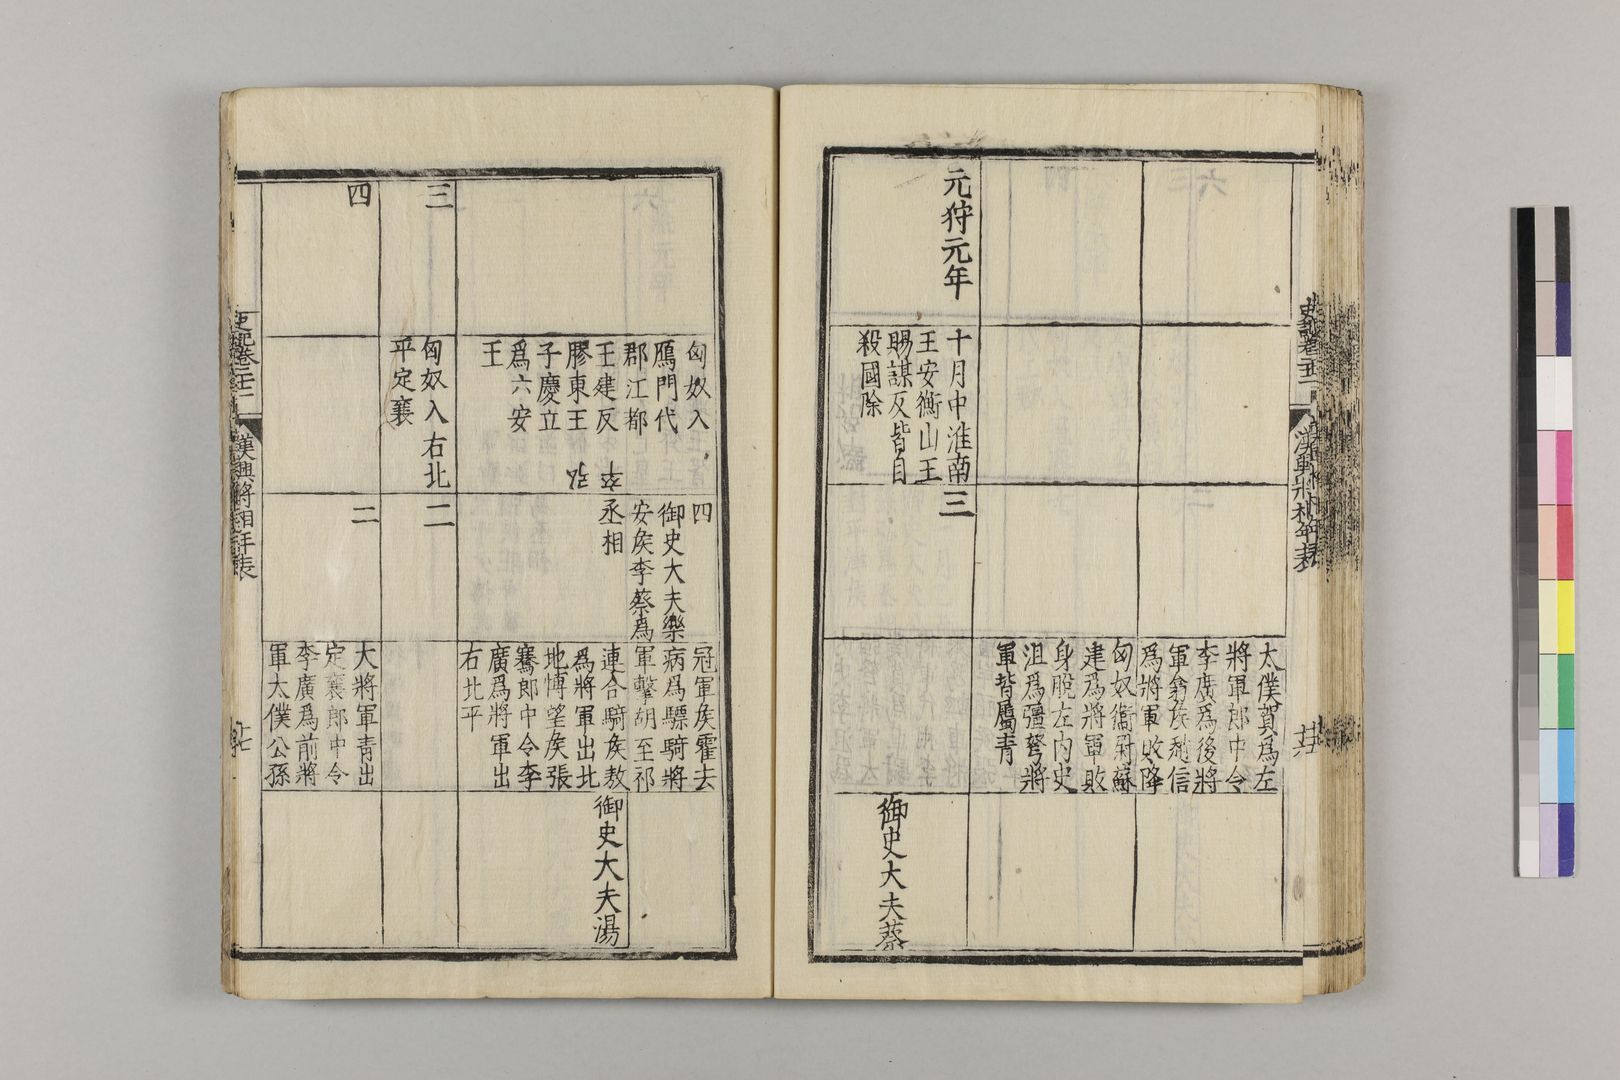 太僕賀爲左
將軍郎中令
李廣爲後將
軍翕侯趙信
爲將軍敗降
匈奴衞尉蘇
建爲將軍敗
身脫左內史
沮爲彊弩將
軍皆屬青
元狩元年
十月中淮南
王安衡山王
賜謀反皆自
殺國除
三
御史大夫蔡
匈奴入
鴈門代
郡江都
王建反
膠東王
子慶立
爲六安
王
四
御史大夫樂
安侯李蔡爲
丞相
冠軍侯霍去
病爲驃騎將
軍擊胡至祁
連合騎侯敖
爲將軍出北
地愽望侯張
騫郎中令李
廣爲將軍出
右北平
御史大夫湯
三
匈奴入右北
平定襄
二
四
二
大將軍青出
定襄郎中令
李廣爲前將
軍太僕公孫
史記卷二十二
漢興將相年表